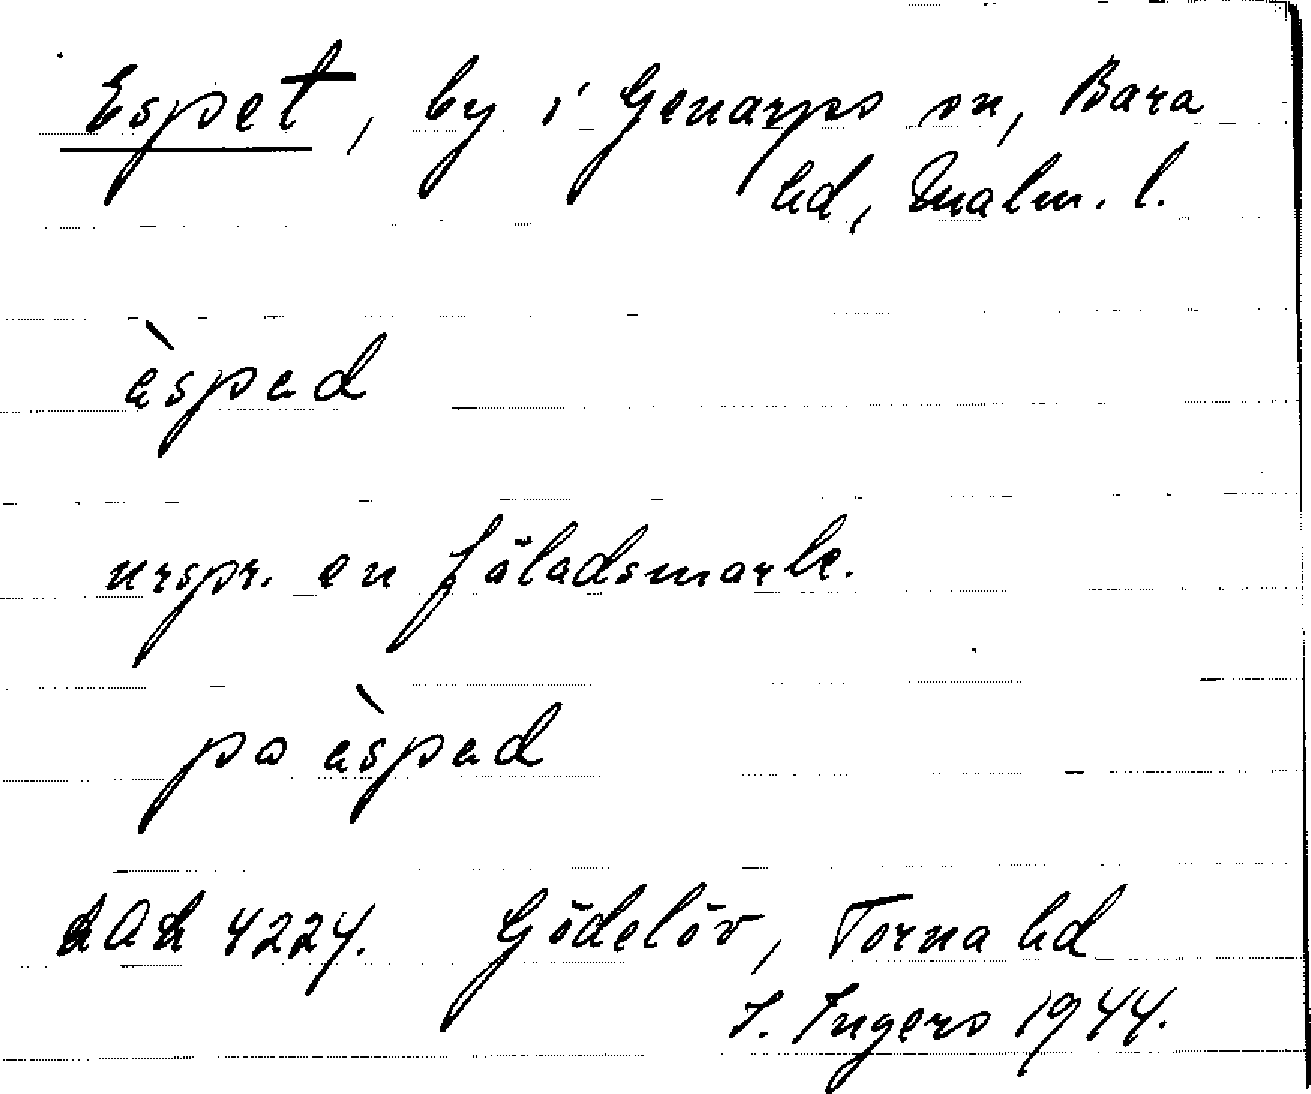 Espet, by i Genarps sn, Bara
hd, Malm. l.
èsped
urspr. en fäladsmark.
pa èsped
LAL 4224. Gödelöv, Torna hd
I. Ingers 1944.